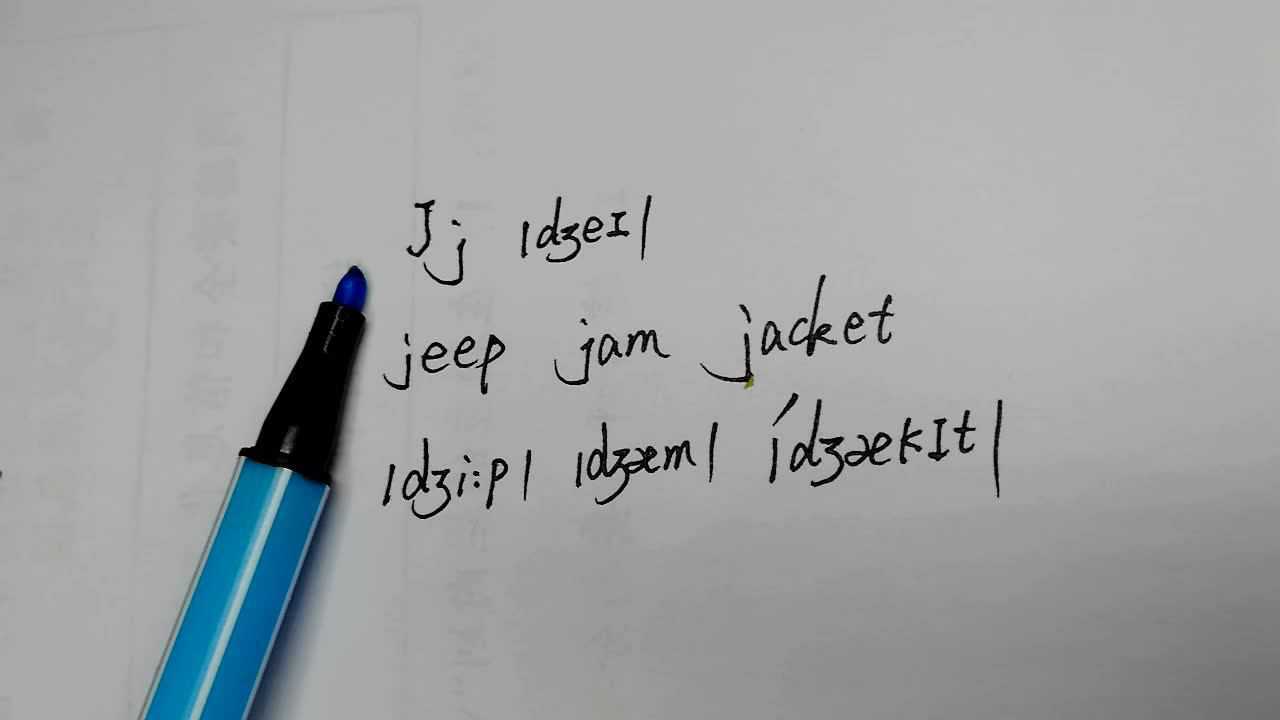 Jj |dʒeɪ|
jeep jam jacket
|dʒi:p| |dʒæm| |ˈdʒækɪt|